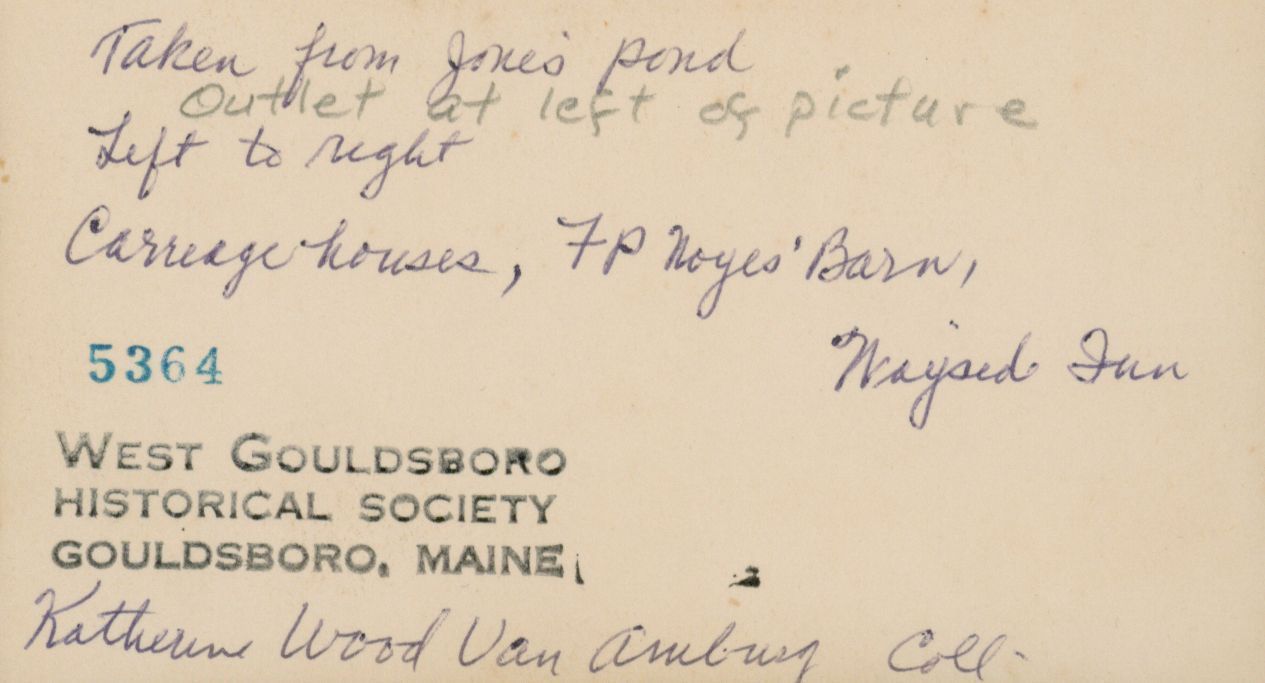 Taken from Jones pond
Outlet at left of picture
Left to right
Carreage houses, FP Noyes' Barn,
Waysed Inn
5364
WEST GOULDSBORO
HISTORICAL SOCIETY
GOULDSBORO, MAINE
Katherine Wood Van Amburg Coll-